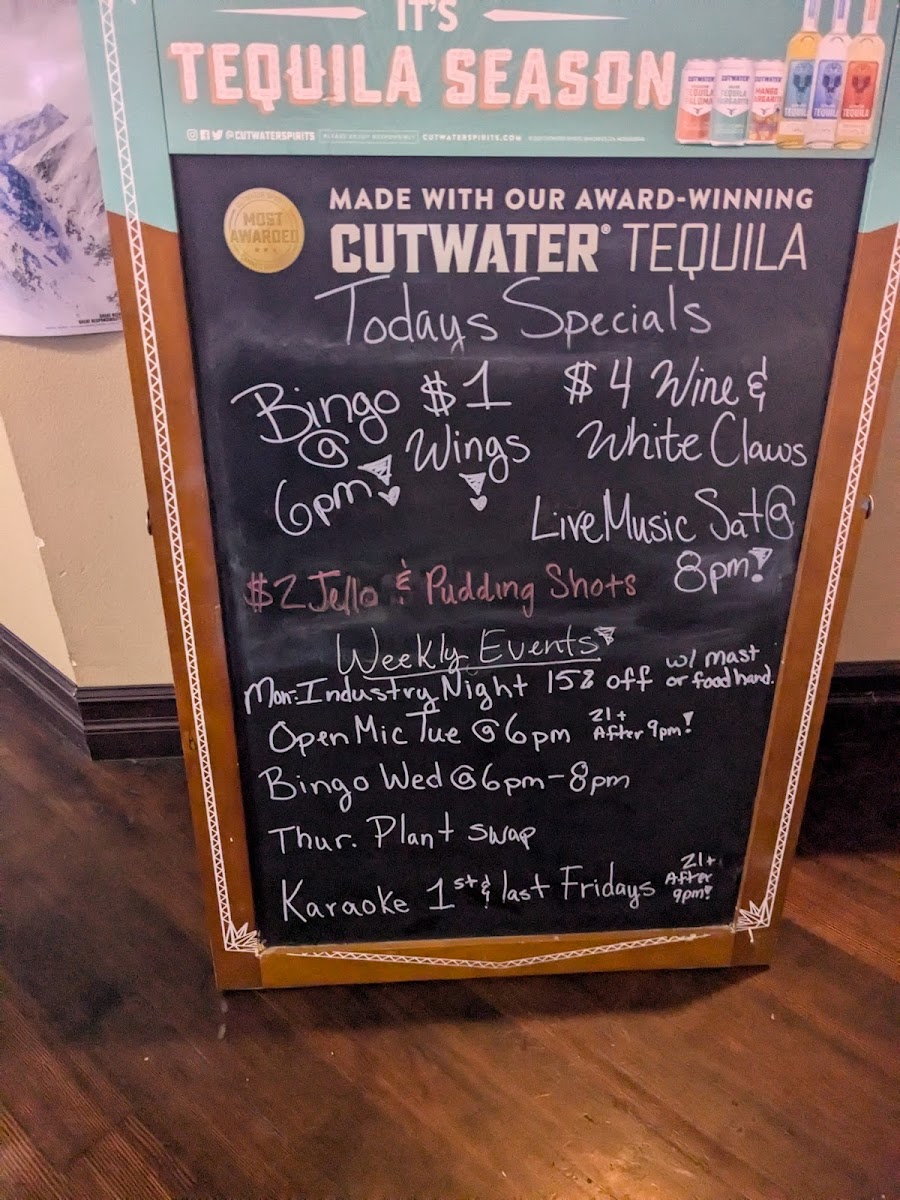 IT'S
TEQUILA SEASON
@CUTWATERSPIRITS PLEASE ENJOY RESPONSIBLY CUTWATERSPIRITS.COM
CUTWATER CUTWATER CUTWATER
TEQUILA PALOMA
MARGARITA
MANGO MARGARITA
TEQUILA TEQUILA TEQUILA
MOST AWARDED
MADE WITH OUR AWARD-WINNING
CUTWATER® TEQUILA
Todays Specials
Bingo @ 6pm!
$1 Wings!
$4 Wine &
White Claws
Live Music Sat @
8pm!
$2 Jello & Pudding Shots
Weekly Events!
Mon: Industry Night 15% off w/ mast or food hand.
Open Mic Tue @ 6pm 21+ After 9pm!
Bingo Wed @ 6pm-8pm
Thur. Plant swap
Karaoke 1st & last Fridays 21+ After 9pm!